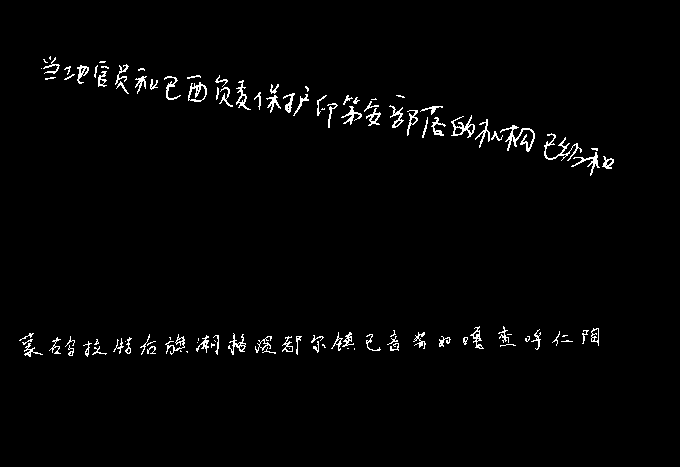 当地官员和巴西负责保护印第安部落的机构已经和
蒙乌拉特后旗潮格温都尔镇巴音努如嘎查呼仁陶